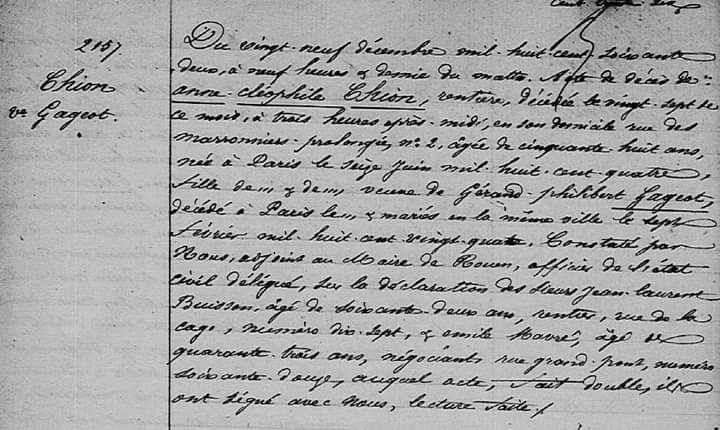 cent
2157.
Chion
ve Gageot.
Du vingt-neuf décembre mil-huit-cent-soixante
deux, à neuf heures & demie du matin. Acte de décès de
anne-cléophile Chion, rentière, décédée le vingt-sept de
ce mois, à trois heures après-midi, en son domicile rue des
marronniers-prolongée, no 2, âgée de cinquante-huit ans,
née à Paris le seize Juin mil-huit-cent-quatre,
fille de ... & de ... veuve de Gérand-philibert Gageot,
décédé à Paris le ... & mariés en la même ville le sept
février mil-huit-cent-vingt-quatre. Constaté par
Nous, adjoint au Maire de Rouen, officier de l'état
civil délégué, sur la déclaration des sieurs Jean-laurent
Buisson, âgé de soixante-deux ans, rentier, rue de la
cage, numéro dix-sept, & emile Havré, âgé de
quarante-trois ans, négociant, rue grand-pont, numéro
soixante-douze, auquel acte, fait double, ils
ont signé avec Nous, lecture faite /